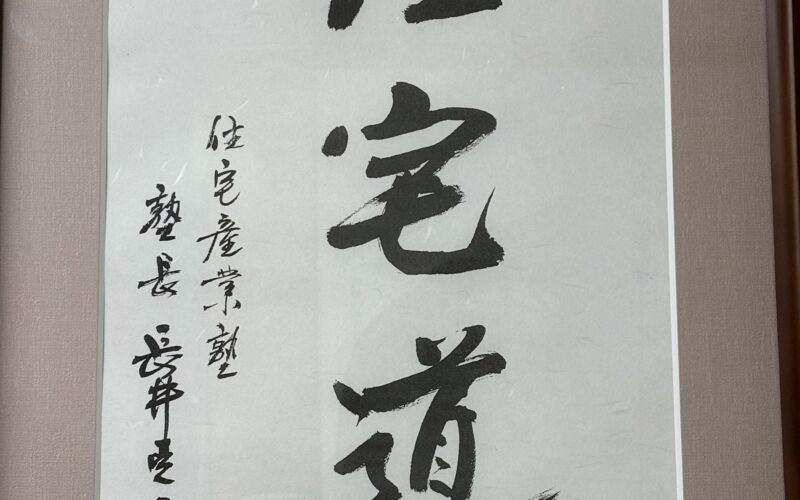 住宅道
住宅産業塾
塾長 長井